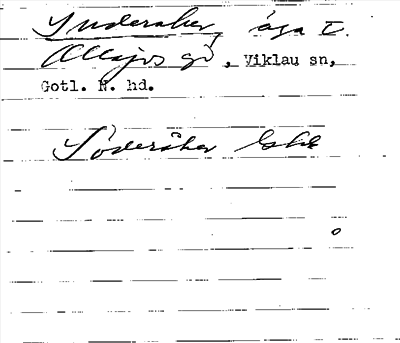 Suderaker, äga I.
Allajvs gd, Viklau sn,
Gotl. N. hd.
Söderåker